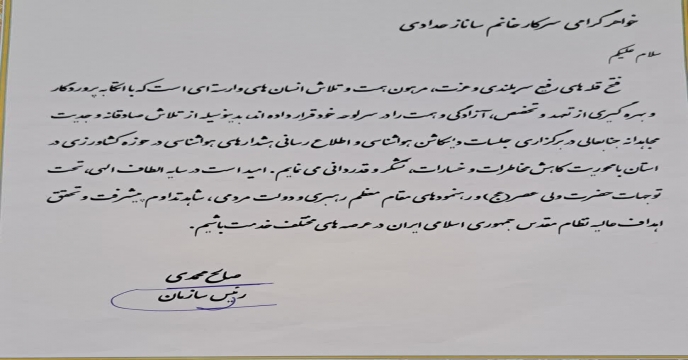 خواهر گرامی سرکار خانم ساناز حدادی
سلام علیکم
فتح قله های رفیع سربلندی و عزت، مرهون همت و تلاش انسان های وارسته ای است که با اتکا به پروردگار
و بهره گیری از تعهد و تخصص، آزادگی و همت را سر لوحه خود قرار داده اند، بدینوسیله از تلاش صادقانه و جدیت
مجدانه جنابعالی در برگزاری جلسات دیسکاشن هواشناسی و اطلاع رسانی هشدارهای هواشناسی در حوزه کشاورزی در
استان با محوریت کاهش مخاطرات و خسارات، تشکر و قدردانی می نمایم. امید است در سایه الطاف الهی، تحت
توجهات حضرت ولی عصر (عج) و رهنمودهای مقام معظم رهبری و دولت مردمی، شاهد تداوم پیشرفت و تحقق
اهداف عالیه نظام مقدس جمهوری اسلامی ایران در عرصه های مختلف خدمت باشیم.
صالح محمدی
رئیس سازمان